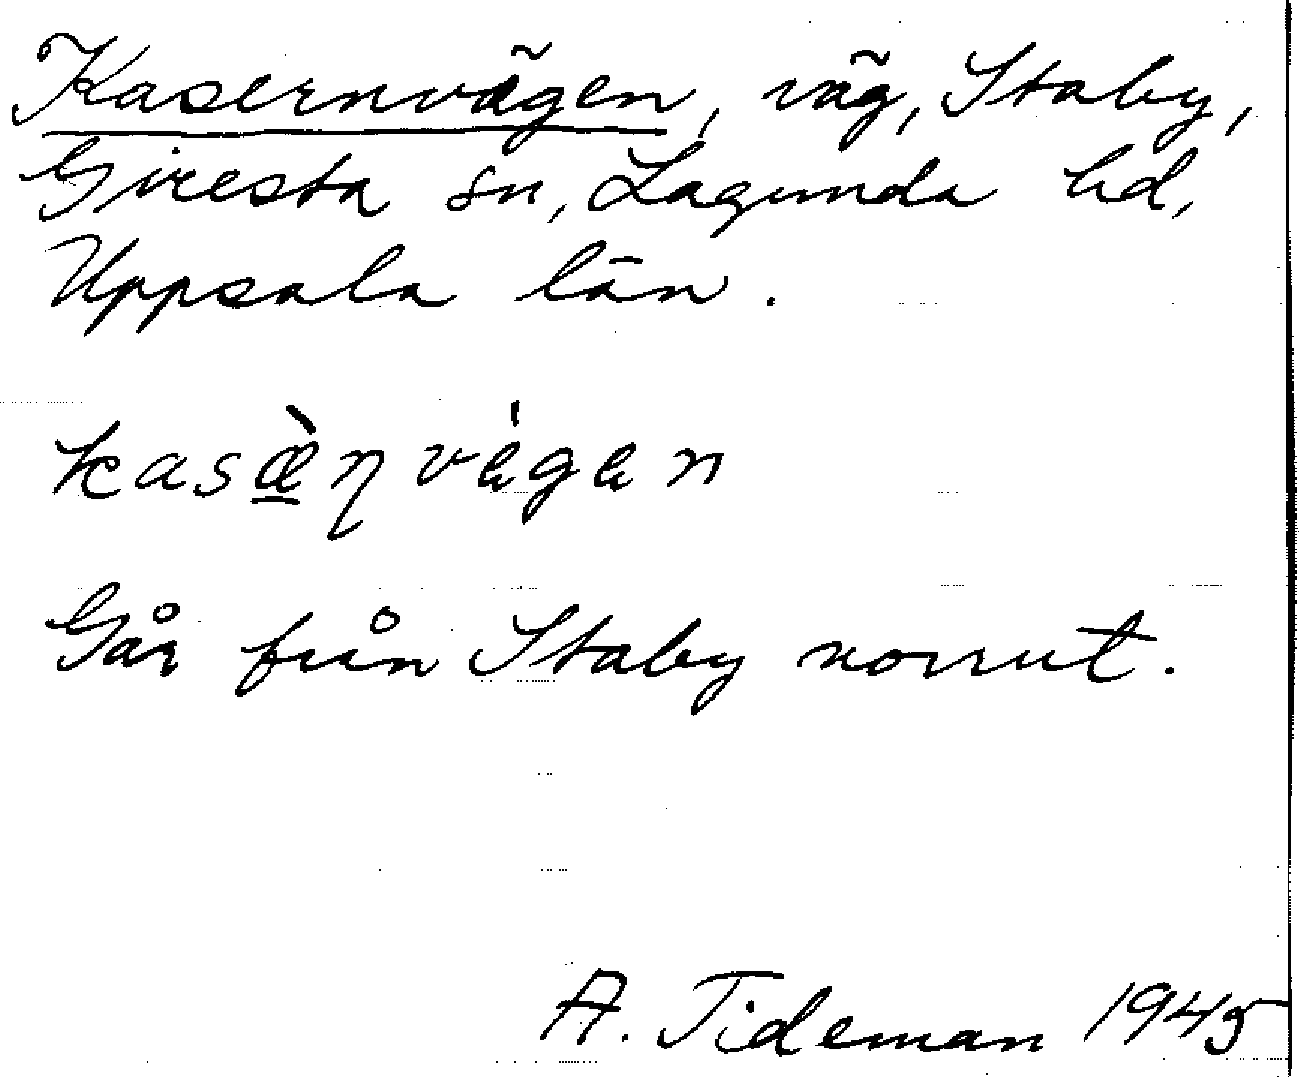 Kasernvägen, väg, Staby,
Giresta sn, Lagunda hd,
Uppsala län.
kasæ̀ɳvégen
Går från Staby norrut.
A. Tideman 1945